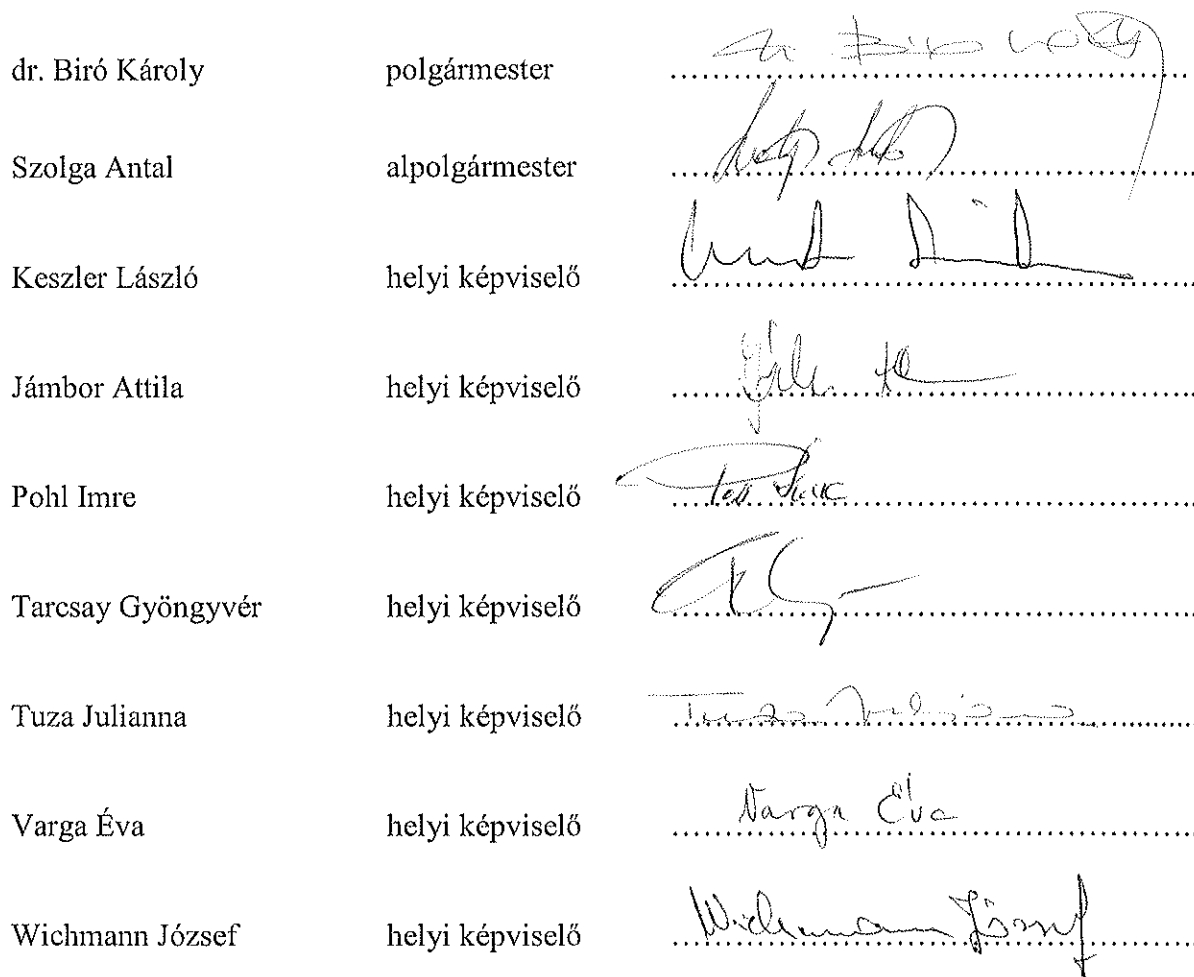 dr. Biró Károly polgármester dr Biró Károly
Szolga Antal alpolgármester
Keszler László helyi képviselő
Jámbor Attila helyi képviselő
Pohl Imre helyi képviselő
Tarcsay Gyöngyvér helyi képviselő
Tuza Julianna helyi képviselő Tuza Julianna
Varga Éva helyi képviselő Varga Éva
Wichmann József helyi képviselő Wichmann József